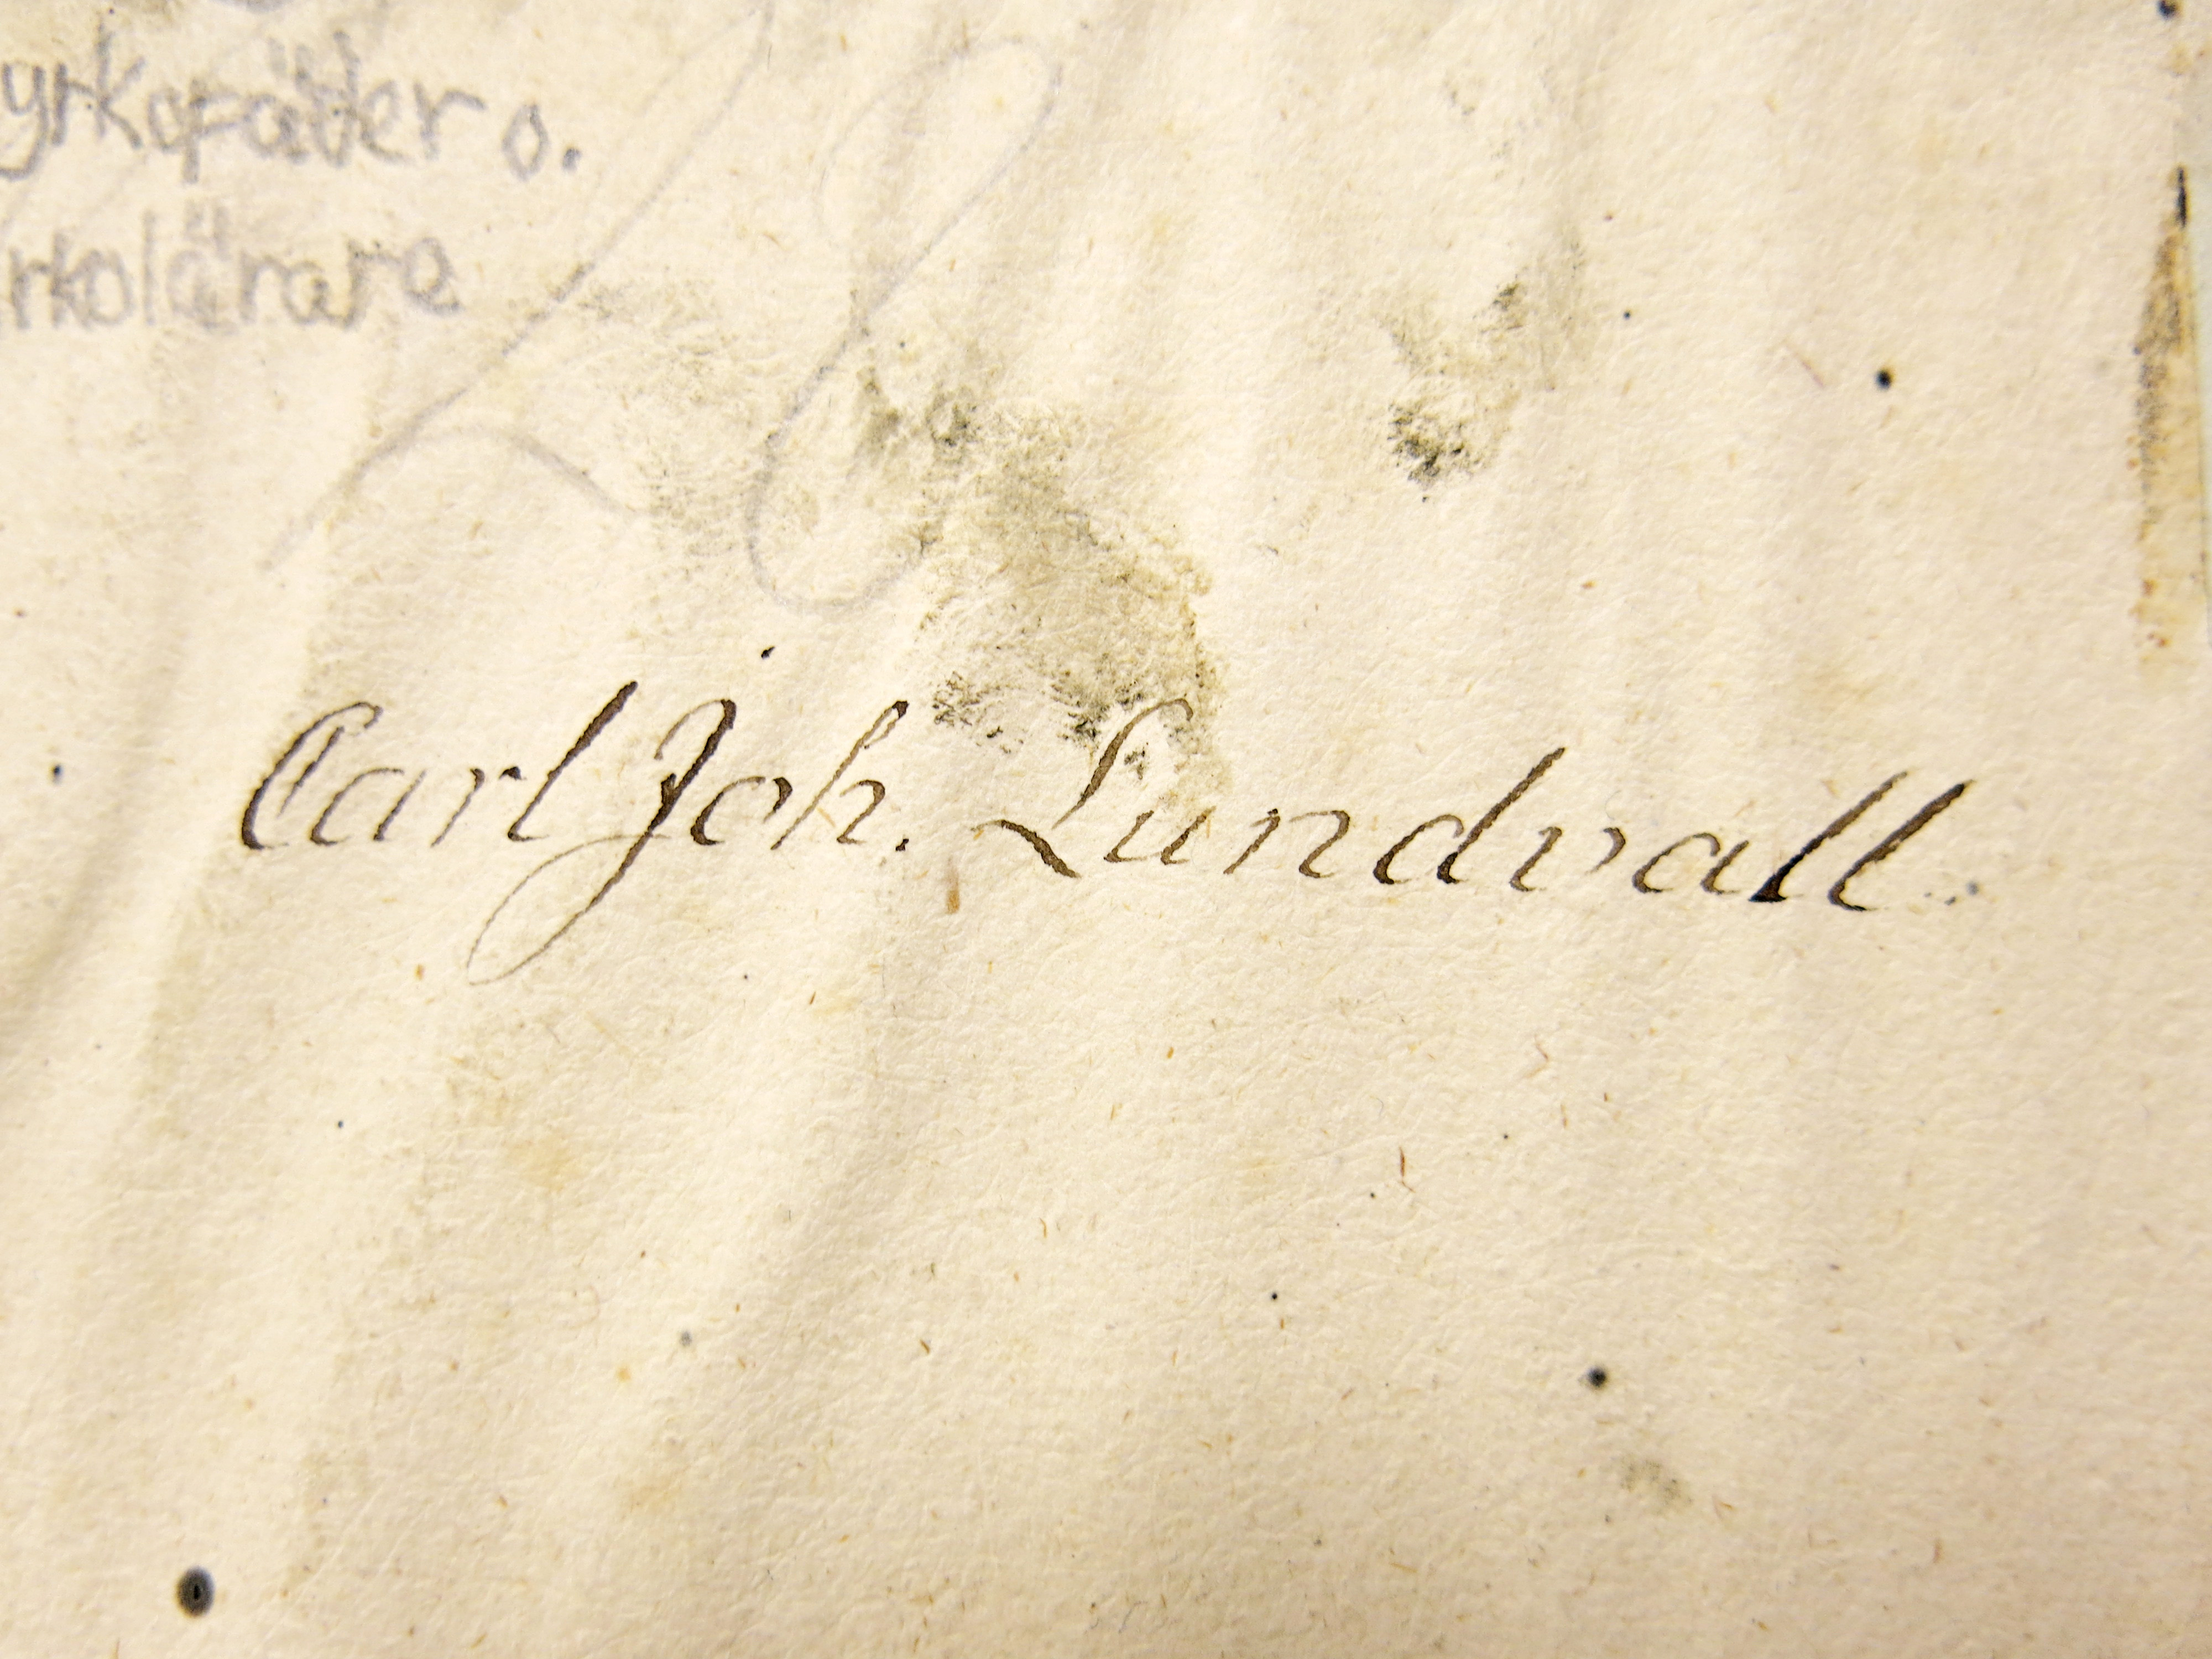 yrkofäder o.
rkolärare
28
Carl Joh. Lundvall